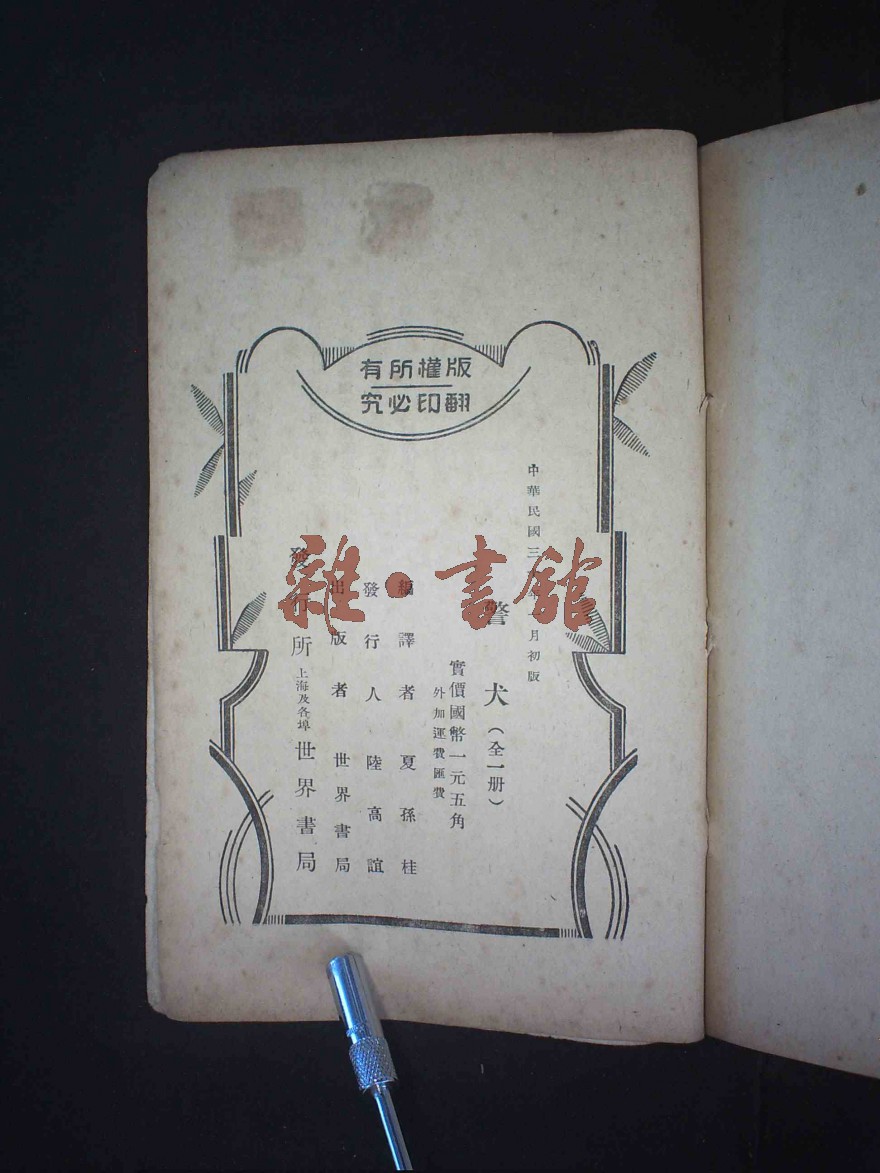 版權所有
翻印必究
中華民國三 月初版
警犬(全一册)
實價國幣一元五角
外加運費匯費
編譯者 夏孫桂
發行人 陸高誼
出版者 世界書局
發行所 上海及各埠 世界書局
雜·書館